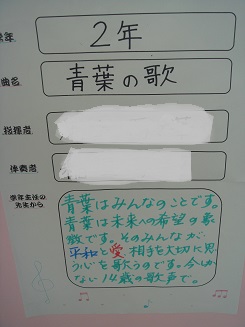 学年
2年
曲名
青葉の歌
指揮者
伴奏者
学年主任の
先生から
青葉はみんなのことです。
青葉は未来への希望の象
徴です。そのみんなが
平和と愛 相手を大切に思
う心を歌うのです。今しか
ない14歳の歌声で。